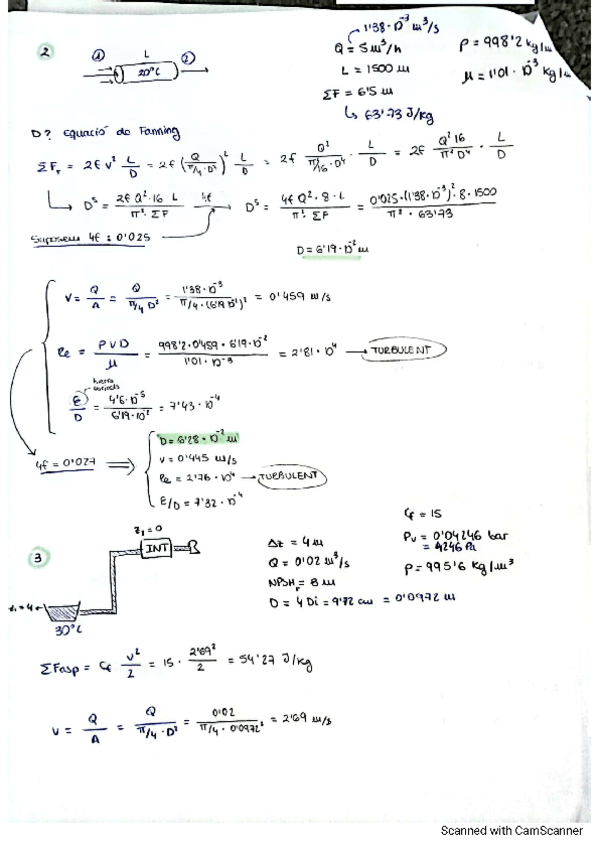 1'38·10⁻³ m³/s
2
① L ②
20°C
Q = 5 m³/h
ρ = 998'2 kg/m
L = 1500 m
μ = 1'01·10⁻³ kg/m
ΣF = 6'5 m
↳ 63'73 J/kg
D? Equació de Fanning
ΣFr = 2f v² L/D = 2f (Q/(π/4·D²))² L/D = 2f Q²/(π²/16·D⁴) · L/D = 2f Q² 16/(π² D⁴) · L/D
↳ D⁵ = 2f Q²·16 L/(π²·ΣF) 4f → D⁵ = 4f Q²·8·L/(π²·ΣF) = 0'025·(1'38·10⁻³)²·8·1500/(π²·63'73)
Suposem 4f = 0'025
D = 6'19·10⁻² m
v = Q/A = Q/(π/4 D²) = 1'38·10⁻³/(π/4·(6'19·10⁻²)²) = 0'459 m/s
Re = ρVD/μ = 998'2·0'459·6'19·10⁻²/(1'01·10⁻³) = 2'81·10⁴ → TURBULENT
ε/D = 4'6·10⁻⁵/(6'19·10⁻²) = 7'43·10⁻⁴
4f = 0'027 ⇒ D = 6'28·10⁻² m
v = 0'445 m/s
Re = 2'76·10⁴ → TURBULENT
ε/D = 7'32·10⁻⁴
3
z₁ = 0
INT
30°C
Δz = 4 m
Q = 0'02 m³/s
NPSHr = 8 m
D = 4 Di = 9'72 cm = 0'0972 m
Cf = 15
Pv = 0'04246 bar
= 4246 Pa
ρ = 995'6 kg/m³
ΣFasp = Cf v²/2 = 15 · 2'69²/2 = 54'27 J/kg
v = Q/A = Q/(π/4·D²) = 0'02/(π/4·0'0972²) = 2'69 m/s
Scanned with CamScanner